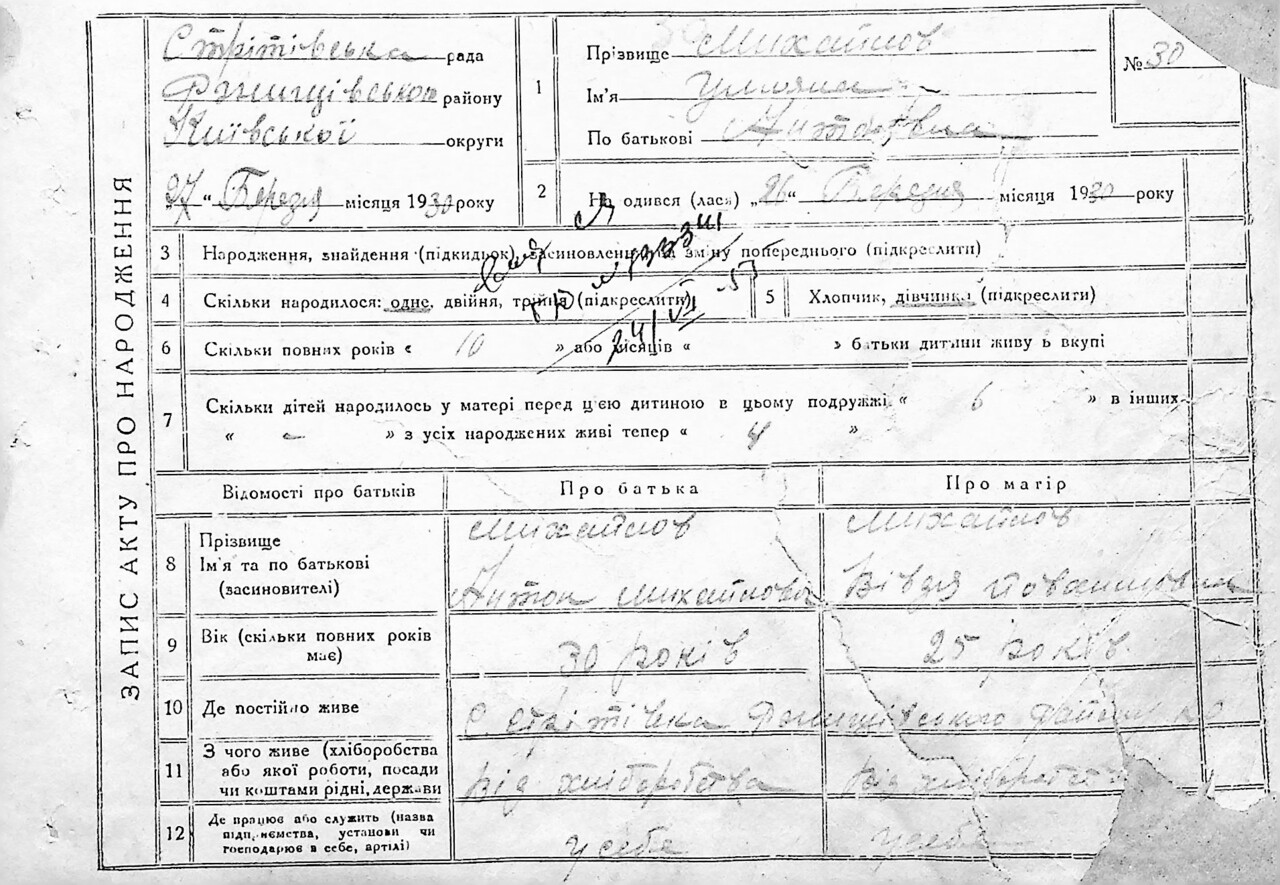 ЗАПИС АКТУ ПРО НАРОДЖЕННЯ
Стрітівська рада
Ржищівського району
Київської округи
„27“ Березня місяця 1930 року
1 Прізвище Михайлов
Ім'я Уляна
По батькові Антонівна
№ 30
2 На одився (лася) „26“ Березня місяця 1930 року
3 Народження, знайдення (підкидьок), засиновлення зміну попереднього (підкреслити)
4 Скільки народилося: одне, двійня, трійня (підкреслити)
5 Хлопчик, дівчинка (підкреслити)
6 Скільки повних років « 10 » або місяців « » батьки дитини живу ь вкупі
7 Скільки дітей народилось у матері перед цією дитиною в цьому подружжі « 6 » в інших
« - » з усіх народжених живі тепер « 4 »
Відомості про батьків Про батька Про матір
8 Прізвище
Ім'я та по батькові
(засиновителі)
Михайлов
Антон Михайлов
Михайлов
Вівдя
9 Вік (скільки повних років має) 30 років 25 років
10 Де постійно живе с. Стрітівка Ржищівського району
11 З чого живе (хліборобства
або якої роботи, посади
чи коштами рідні, держави
Від хліборобства Від хліборобства
12 Де працює або служить (назва
підприємства, установи чи
господарює в себе, артілі)
у себе у себе